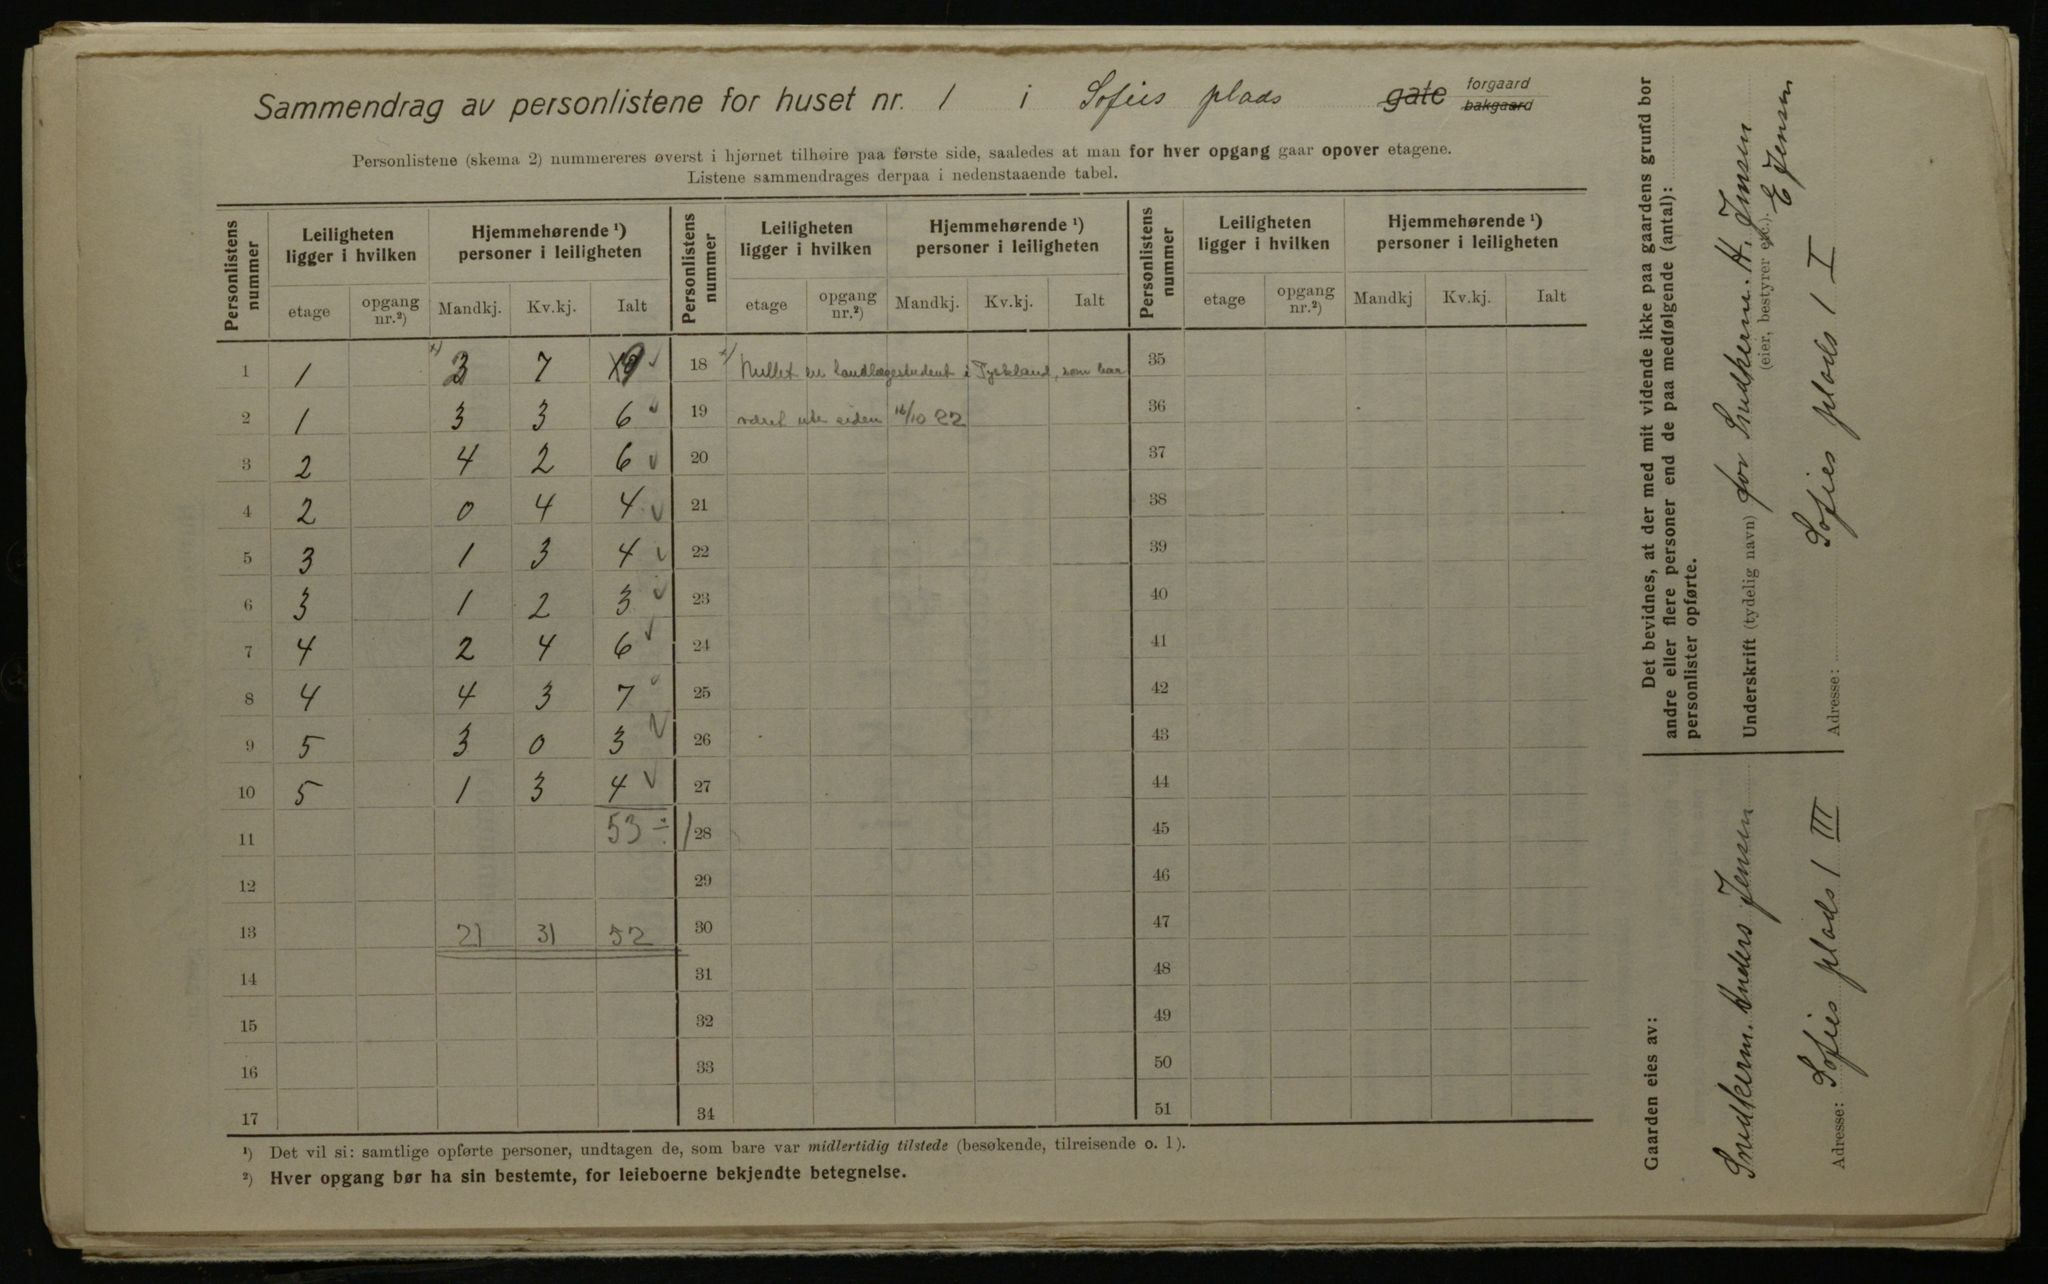 Sammendrag av personlistene for huset nr. 1 i Sofies plads gate forgaard bakgaard
Personlistene (skema 2) nummereres øverst i hjørnet tilhøire paa første side, saaledes at man for hver opgang gaar opover etagene.
Listene sammendrages derpaa i nedenstaaende tabel.
Personlistens nummer | Leiligheten ligger i hvilken | Hjemmehørende ¹) personer i leiligheten | Personlistens nummer | Leiligheten ligger i hvilken | Hjemmehørende ¹) personer i leiligheten | Personlistens nummer | Leiligheten ligger i hvilken | Hjemmehørende ¹) personer i leiligheten
etage | opgang nr.²) | Mandkj. | Kv.kj. | Ialt | etage | opgang nr.²) | Mandkj. | Kv.kj. | Ialt | etage | opgang nr.²) | Mandkj | Kv.kj. | Ialt
1 1 x) 7 9 18 x) en tandlægestudent i Tyskland, som har 35
2 1 3 3 6 19 været ute siden 16/10 22 36
3 2 4 2 6 20 37
4 2 0 4 4 21 38
5 3 1 3 4 22 39
6 3 1 2 3 23 40
7 4 2 4 6 24 41
8 4 4 3 7 25 42
9 5 3 0 3 26 43
10 5 1 3 4 27 44
11 53 ÷ 1 28 45
12 29 46
13 21 31 52 30 47
14 31 48
15 32 49
16 33 50
17 34 51
¹) Det vil si: samtlige opførte personer, undtagen de, som bare var midlertidig tilstede (besøkende, tilreisende o. l).
²) Hver opgang bør ha sin bestemte, for leieboerne bekjendte betegnelse.
Det bevidnes, at der med mit vidende ikke paa gaardens grund bor
andre eller flere personer end de paa medfølgende (antal):
personlister opførte.
Underskrift (tydelig navn) for Snedkerm. A. Jensen
(eier, bestyrer etc.). E Jensen
Adresse: Sofies plads 1 I
Gaarden eies av:
Snedkerm. Anders Jensen
Adresse: Sofies plads 1 III